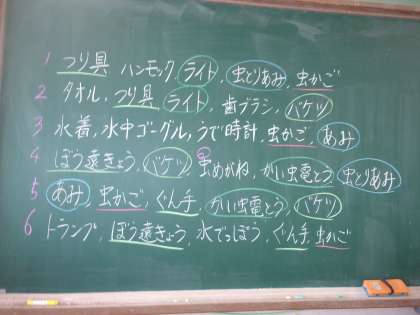 1 つり具 ハンモック,ライト,虫とりあみ,虫かご
2 タオル,つり具,ライト,歯ブラシ,バケツ
3 水着,水中ゴーグル,うで時計,虫かご,あみ
4 ぼう遠きょう,バケツ,虫めがね,がい虫電とう,虫とりあみ
5 あみ,虫かご,ぐん手,がい虫電とう,バケツ
6 トランプ,ぼう遠きょう,水でっぽう,ぐん手,虫かご